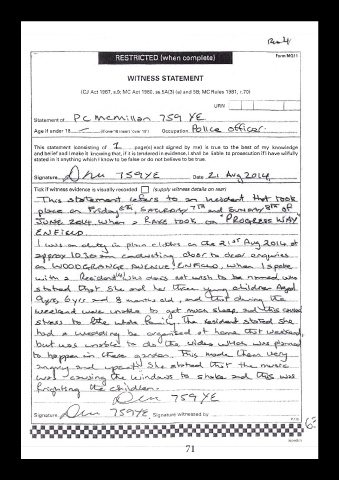 RESTRICTED (when complete)
Form MG11
WITNESS STATEMENT
(CJ Act 1967, s.9; MC Act 1980, ss.5A(3) (a) and 5B; MC Rules 1981, r.70)
URN
Statement of PC McMillan 759 YE
Age if under 18 (if over 18 insert 'over 18') Occupation Police officer
This statement (consisting of 1 page(s) each signed by me) is true to the best of my knowledge
and belief and I make it knowing that, if it is tendered in evidence, I shall be liable to prosecution if I have wilfully
stated in it anything which I know to be false or do not believe to be true.
Signature 759YE Date 21 Aug 2014
Tick if witness evidence is visually recorded (supply witness details on rear)
This statement refers to an incident that took
place on Friday 6th, SATURDAY 7th and SUNDAY 8th OF
JUNE 2014. When a RAVE took on PROGRESS WAY
ENFIELD.
I was on duty in plain clothes on the 21st Aug 2014 at
approx 10.30am conducting door to door enquiries
on WOODGRANGE AVENUE, ENFIELD, When I spoke
with a Resident who does not wish to be named who
stated that she and her three young children Aged
9yrs, 6yrs and 8 months old, and that during the
weekend were unable to get much sleep and this caused
stress to the whole family. The resident stated she
had a wedding be organised at home that weekend,
but was unable to do the video which was planned
to happen in there garden. This made them very
angry and upset. She stated that the music
was causing the windows to shake and this was
frighting the children.
759 YE
Signature 759YE Signature witnessed by
71